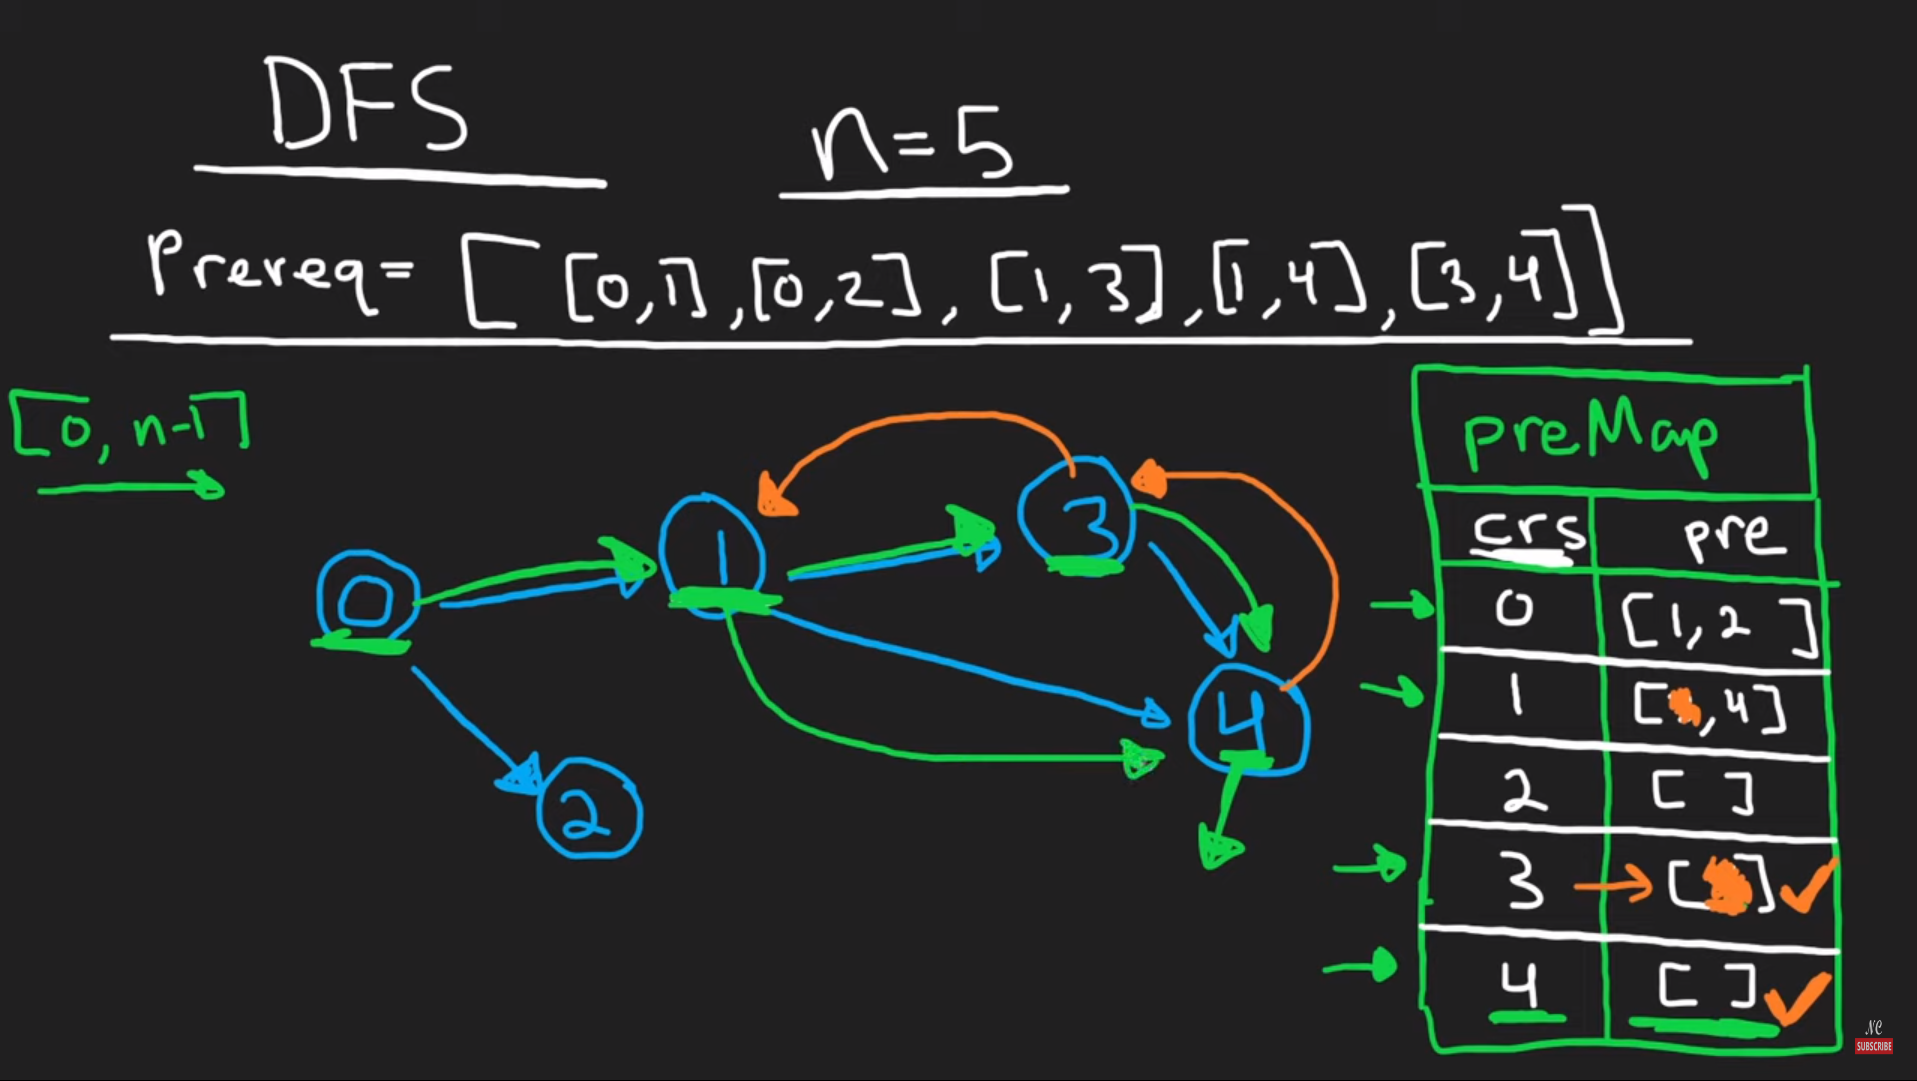 DFS
n=5
Prereq= [ [0,1],[0,2], [1,3],[1,4],[3,4]]
[0, n-1]
0
1
3
4
2
preMap
crs pre
0 [1,2 ]
1 [ ,4]
2 [ ]
3 → [ ] ✓
4 [ ] ✓
NC
SUBSCRIBE